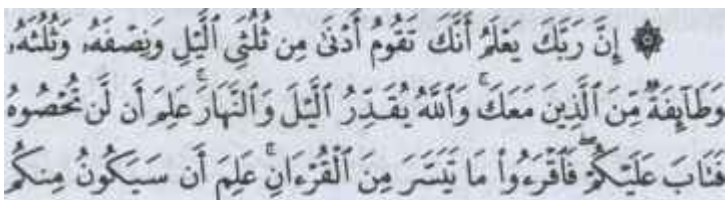 ۞ إِنَّ رَبَّكَ يَعْلَمُ أَنَّكَ تَقُومُ أَدْنَىٰ مِن ثُلُثَيِ ٱلَّيْلِ وَنِصْفَهُۥ وَثُلُثَهُۥ
وَطَآئِفَةٌ مِّنَ ٱلَّذِينَ مَعَكَ ۚ وَٱللَّهُ يُقَدِّرُ ٱلَّيْلَ وَٱلنَّهَارَ ۚ عَلِمَ أَن لَّن تُحْصُوهُ
فَتَابَ عَلَيْكُمْ ۖ فَٱقْرَءُوا۟ مَا تَيَسَّرَ مِنَ ٱلْقُرْءَانِ ۚ عَلِمَ أَن سَيَكُونُ مِنكُم